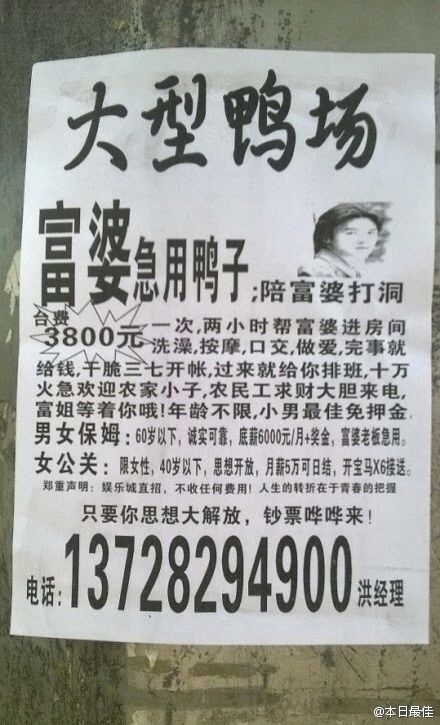 大型鸭场
富婆急用鸭子;陪富婆打洞
台费
3800元
一次,两小时帮富婆进房间
洗澡,按摩,口交,做爱,完事就
给钱,干脆三七开帐,过来就给你排班,十万
火急欢迎农家小子,农民工求财大胆来电,
富姐等着你哦!年龄不限,小男最佳免押金.
男女保姆:60岁以下,诚实可靠,底薪6000元/月+奖金,富婆老板急用。
女公关:限女性,40岁以下,思想开放,月薪5万可日结,开宝马X6接送。
郑重声明:娱乐城直招,不收任何费用!人生的转折在于青春的把握
只要你思想大解放,钞票哗哗来!
电话:13728294900洪经理
@本日最佳